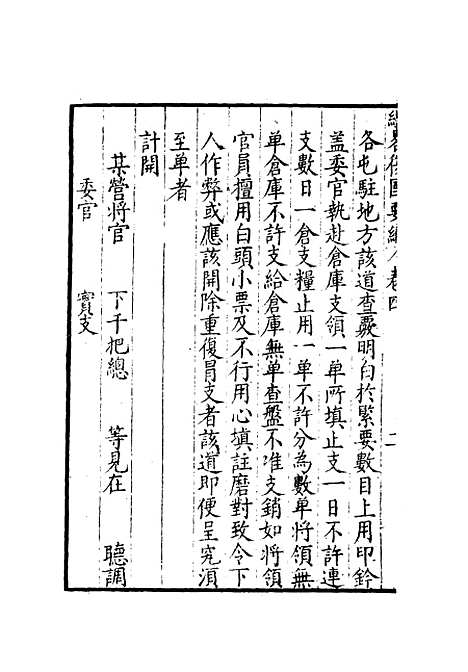 經畧復國要編 卷四 二
各屯駐地方該道查覈明白於緊要數目上用印鈐
蓋委官執赴倉庫支領一單所填止支一日不許連
支數日一倉支糧止用一單不許分為數單將領無
單倉庫不許支給倉庫無單查盤不准支銷如將領
官員擅用白頭小票及不行用心填註磨對致令下
人作弊或應該開除重復冐支者該道即便呈究湏
至单者
計開
某營將官 下千把總 等見在 聽調
委官 實支